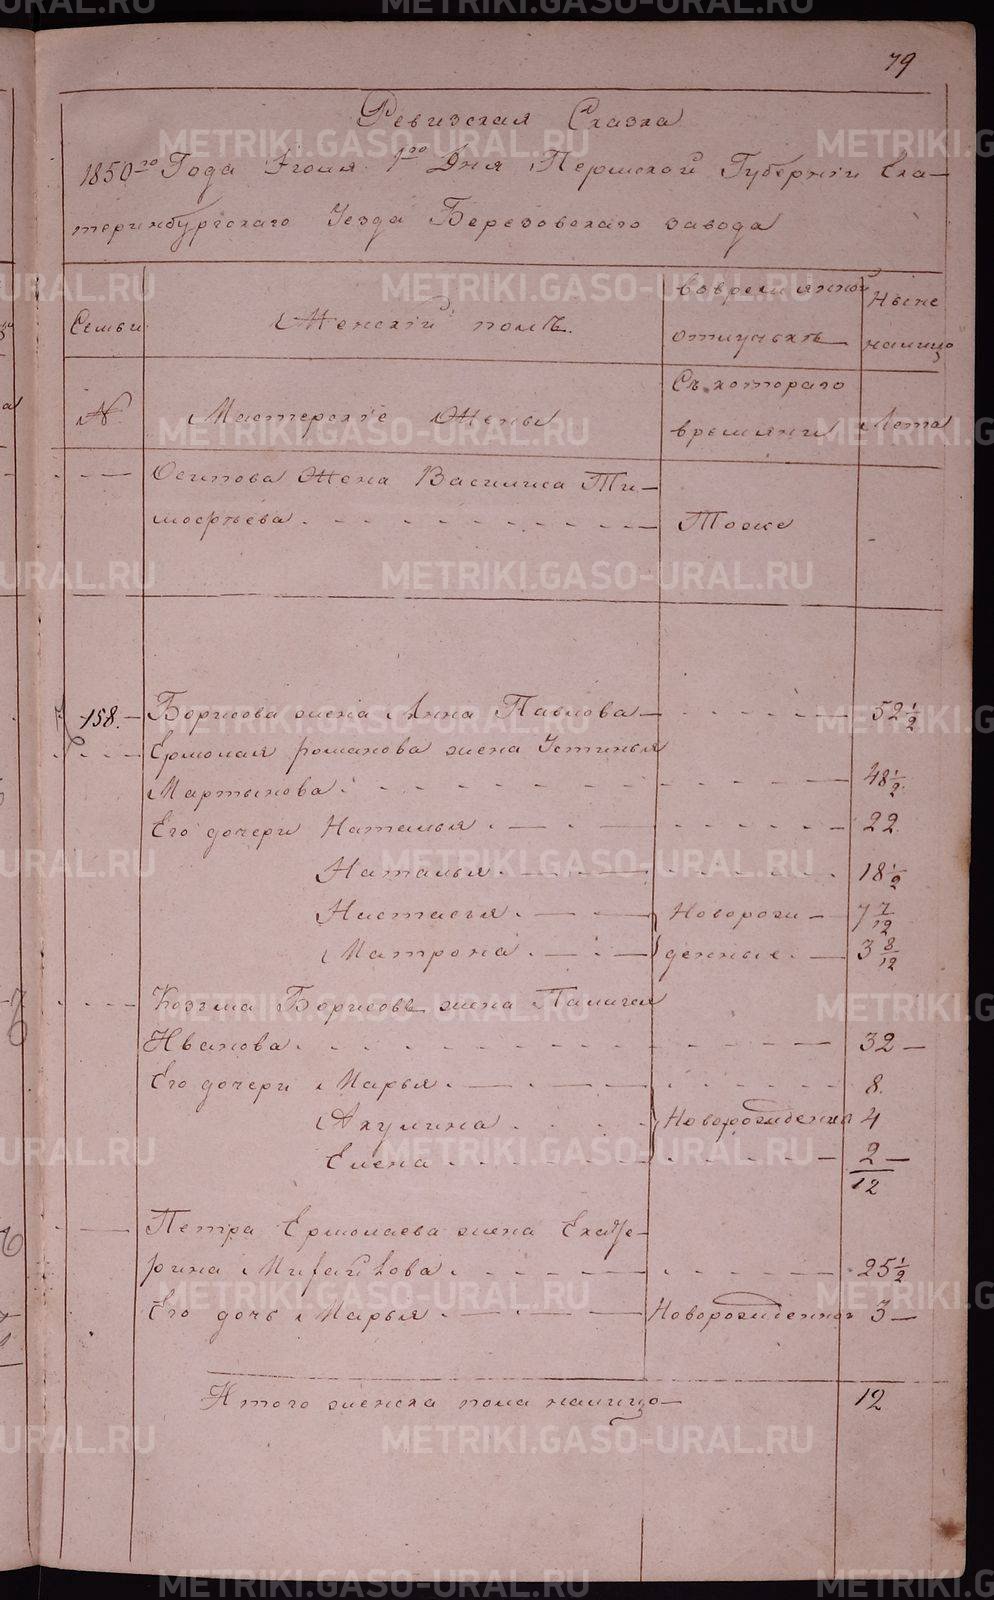 79
Ревизская Сказка
1850го Года Июня 1го Дня Пермской Губернiи Ека-
теринбургскаго Уезда Березовскаго завода
Семьи
Женскiй полъ.
вовременной
отлучкъ
Ныне
налицо
№
Мастерскiе Жены
Съ котораго
времяни
Лета
Осипова Жена Василиса Ти-
мофеева Тоже
158. Борисова жена Анна Павлова 52 1/2
Ермолая романова жена Устинья
Мартынова 48 1/2
Его дочери Наталья 22
Наталья 18 1/2
Настасья Новорож- 7 7/12
Матрона денные 3 8/12
Козьма Борисовъ жена Палагея
Иванова 32
Его дочери Марья 8
Акулина Новорожденна 4
Елена 2/12
Петра Ермолаева жена Екате-
рина Михайлова 25 1/2
Его дочь Марья Новорожденная 3
Итого женска пола налицо 12
METRIKI.GASO-URAL.RU